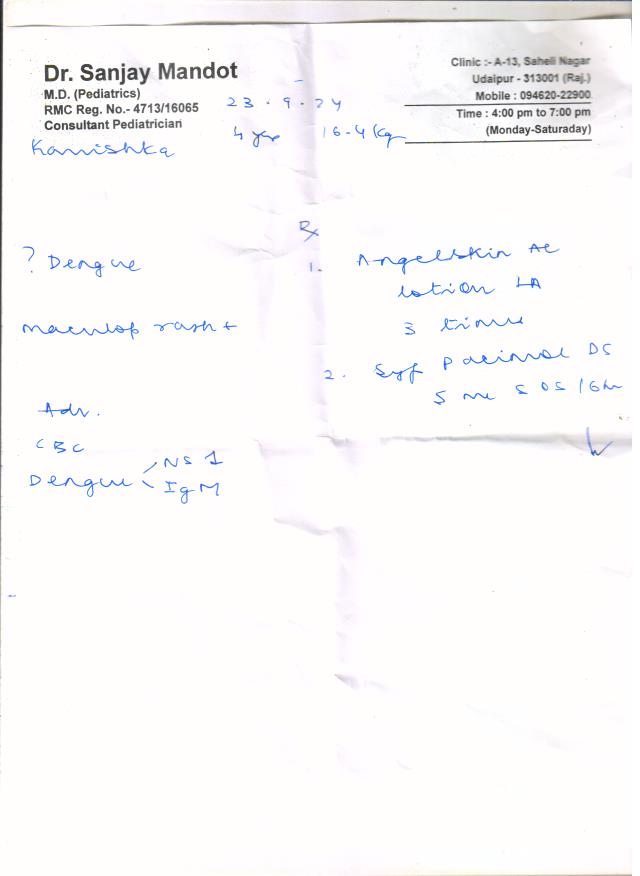 Dr. Sanjay Mandot
M.D. (Pediatrics)
RMC Reg. No.- 4713/16065
Consultant Pediatrician
Clinic :- A-13, Saheli Nagar
Udaipur - 313001 (Raj.)
Mobile : 094620-22900
Time : 4:00 pm to 7:00 pm
(Monday-Saturaday)
23.9.24
4 yrs 16.4 kg
Kanishka
Rx
? Dengue
maculop rash +
Adv.
CBC
Dengue NS 1
IgM
1. Angelskin AC
lotion LA
3 times
2. Syp Pacimol DS
5 ml SOS / 6hr